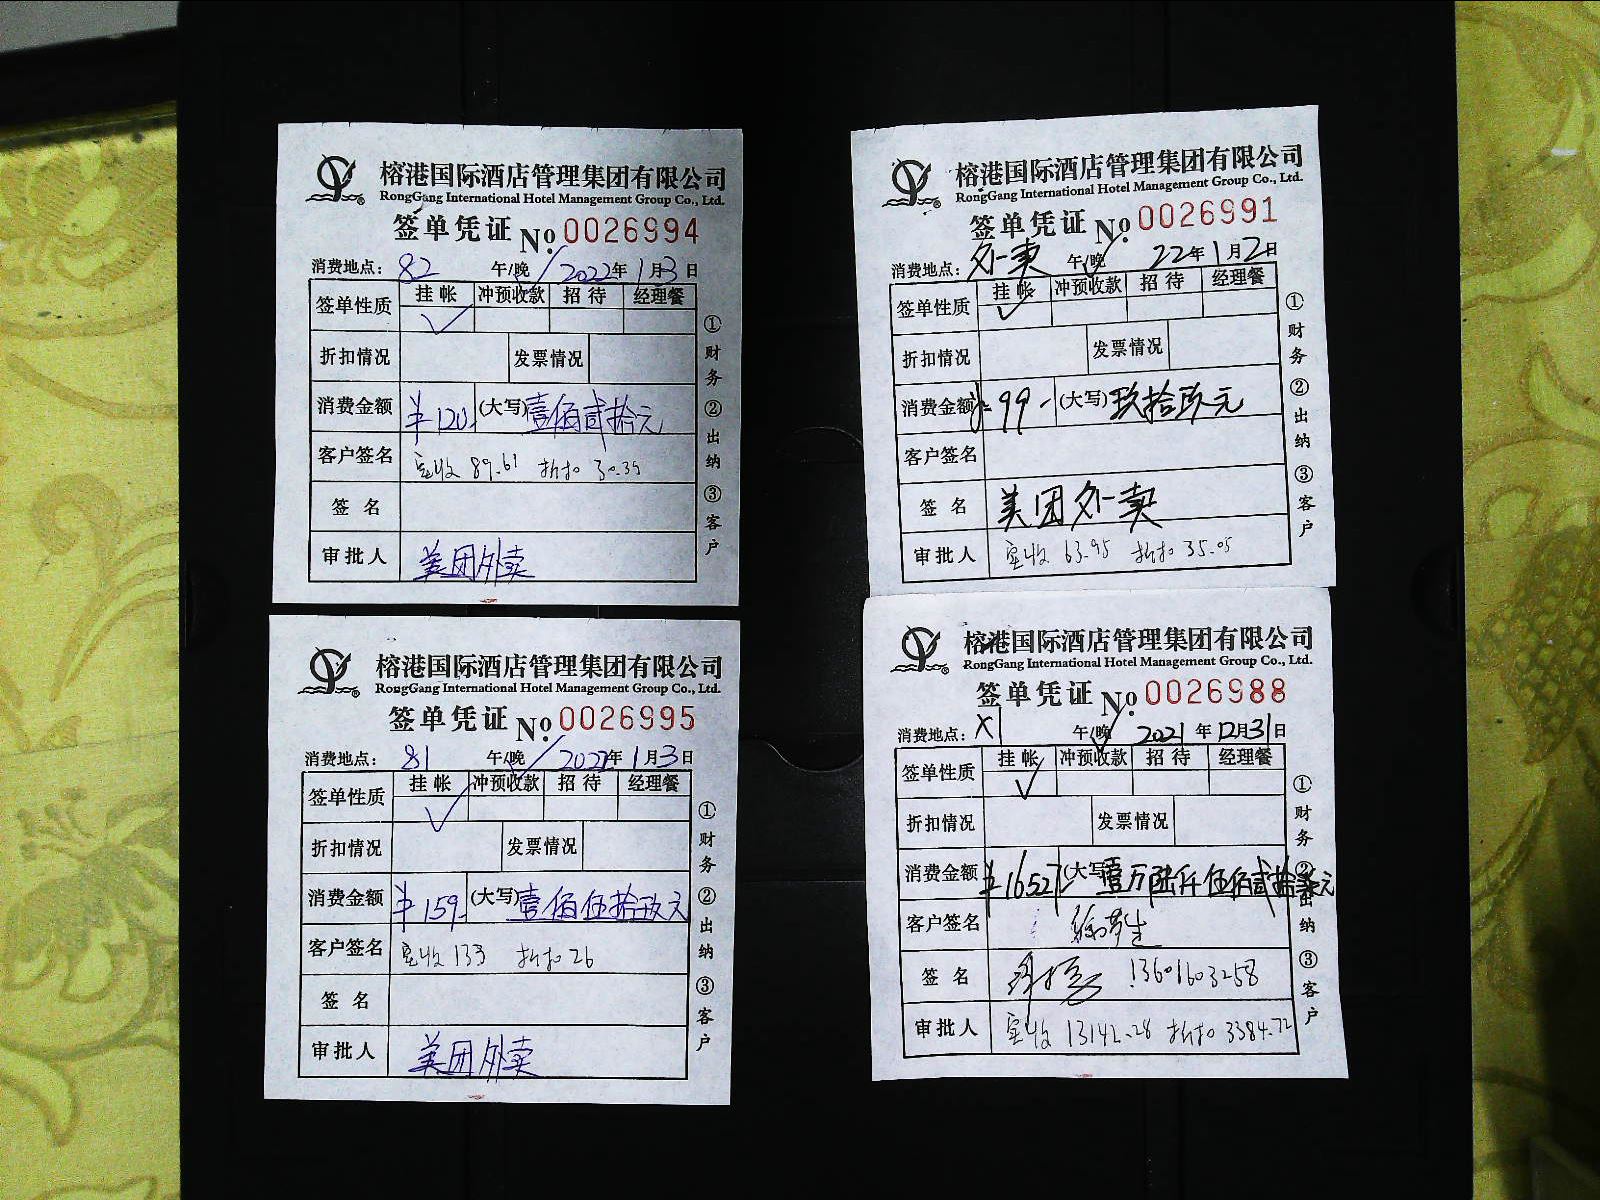 榕港国际酒店管理集团有限公司
RongGang International Hotel Management Group Co., Ltd.
签单凭证 No. 0026994
消费地点: 82 午/晚 2022年1月3日
签单性质 挂帐 冲预收款 招待 经理餐
折扣情况 发票情况
消费金额 ¥120 (大写)壹佰贰拾元
客户签名 实收 89.61 折扣 30.39
签名
审批人 美团外卖
①财务 ②出纳 ③客户
榕港国际酒店管理集团有限公司
RongGang International Hotel Management Group Co., Ltd.
签单凭证 No. 0026991
消费地点: 外卖 午/晚 22年1月2日
签单性质 挂帐 冲预收款 招待 经理餐
折扣情况 发票情况
消费金额 ¥99- (大写)玖拾玖元
客户签名
签名 美团外卖
审批人 实收 63.95 折扣 35.05
①财务 ②出纳 ③客户
榕港国际酒店管理集团有限公司
RongGang International Hotel Management Group Co., Ltd.
签单凭证 No. 0026995
消费地点: 81 午/晚 2022年1月3日
签单性质 挂帐 冲预收款 招待 经理餐
折扣情况 发票情况
消费金额 ¥159- (大写)壹佰伍拾玖元
客户签名 实收 133 折扣 26
签名
审批人 美团外卖
①财务 ②出纳 ③客户
榕港国际酒店管理集团有限公司
RongGang International Hotel Management Group Co., Ltd.
签单凭证 No. 0026988
消费地点: X1 午/晚 2021年12月31日
签单性质 挂帐 冲预收款 招待 经理餐
折扣情况 发票情况
消费金额 ¥16527- (大写)壹万陆仟伍佰贰拾柒元
客户签名
签名 13601603258
审批人 实收 13142.28 折扣 3384.72
①财务 ②出纳 ③客户